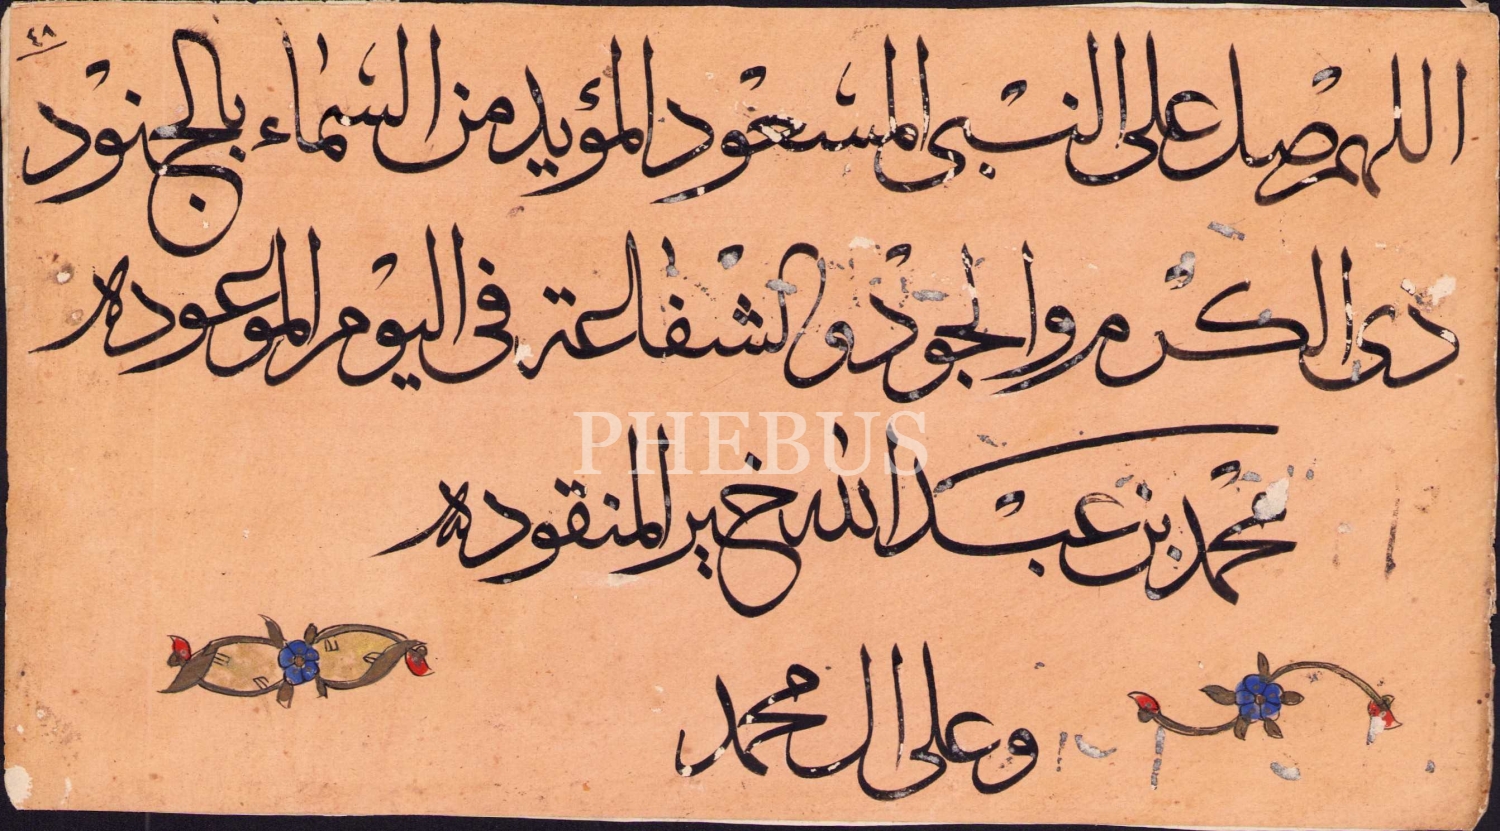 ٤٨
اللهم صل على النبى المسعود المؤيد من السماء بالجنود
ذى الكرم والجود والشفاعة فى اليوم الموعوده
PHEBUS
محمد بن عبد الله خير المنقوده
وعلى ال محمد